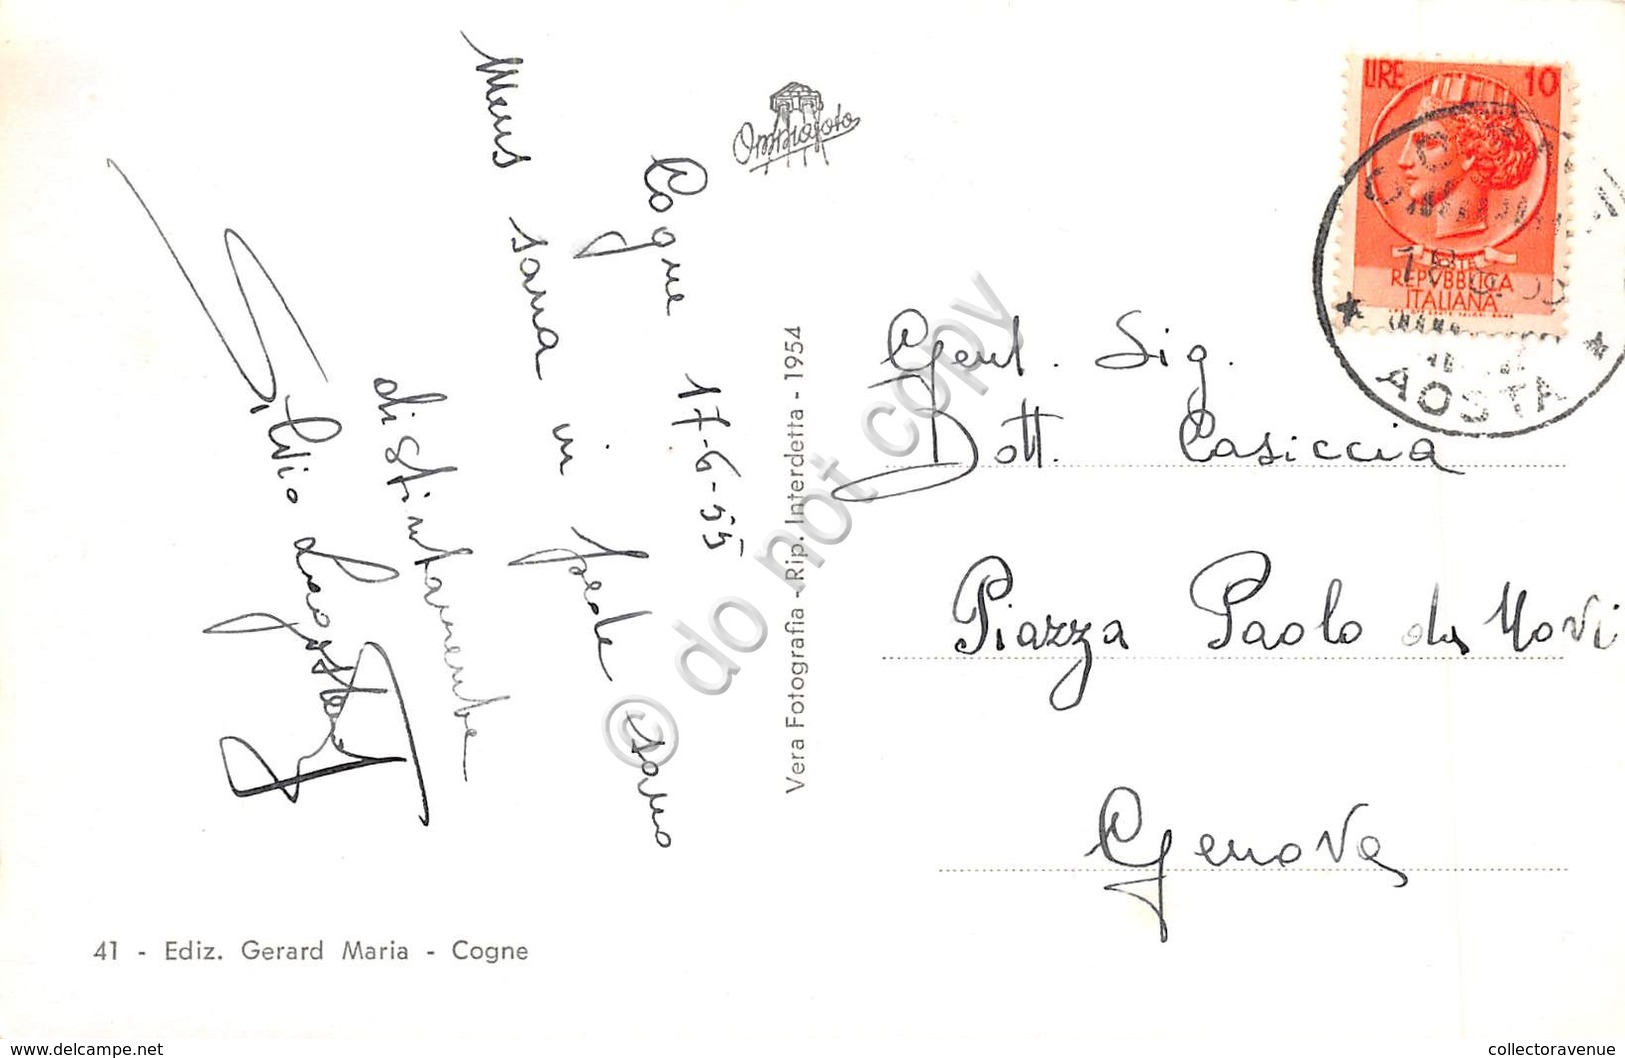 Ommiafoto
Cogne 17-6-55
Mens sana in pede sano
distintamente
Silvio
Vera Fotografia - Rip. Interdetta - 1954
41 - Ediz. Gerard Maria - Cogne
LIRE 10
POSTE
REPVBBLICA
ITALIANA
AOSTA
Gent. Sig.
Dott. Casiccia
Piazza Paolo da Novi
Genova
© do not copy
www.delcampe.net
collectoravenue